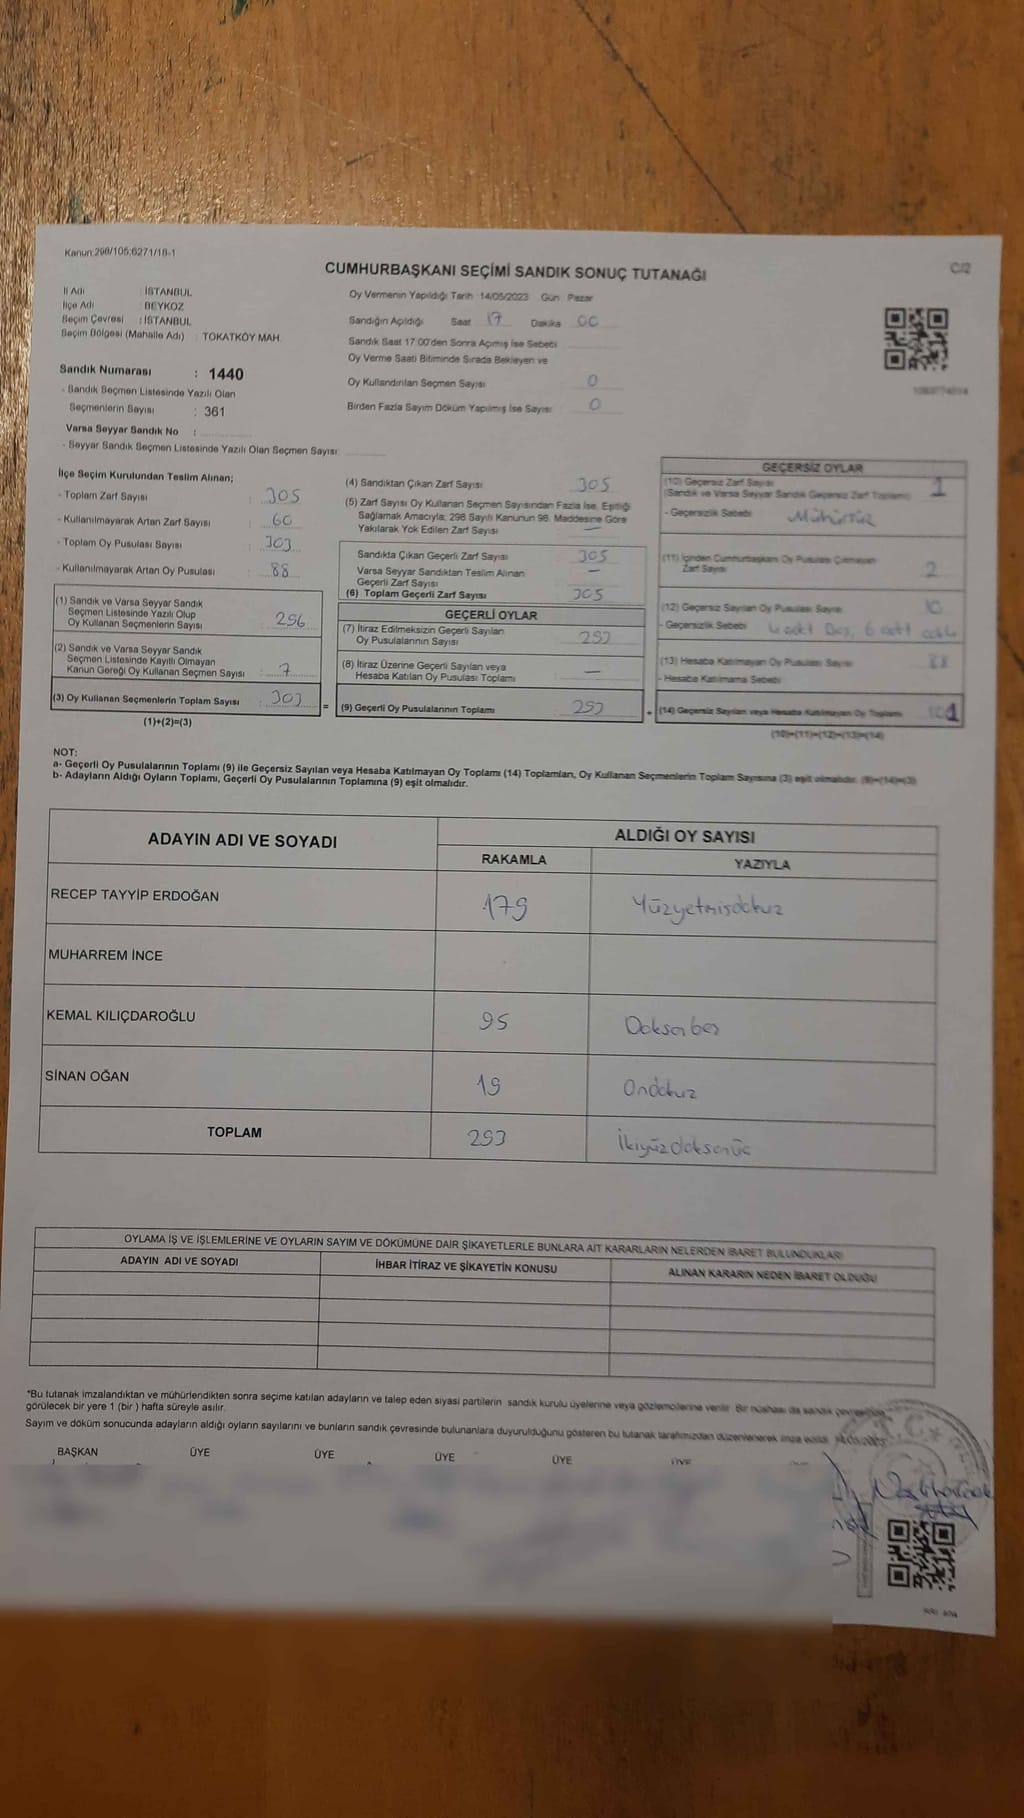 Kanun:298/105;6271/18-1
C/2
CUMHURBAŞKANI SEÇİMİ SANDIK SONUÇ TUTANAĞI
İl Adı : İSTANBUL
İlçe Adı : BEYKOZ
Seçim Çevresi : İSTANBUL
Seçim Bölgesi (Mahalle Adı) : TOKATKÖY MAH.
Sandık Numarası : 1440
- Sandık Seçmen Listesinde Yazılı Olan
Seçmenlerin Sayısı : 361
Varsa Seyyar Sandık No :
- Seyyar Sandık Seçmen Listesinde Yazılı Olan Seçmen Sayısı:
Oy Vermenin Yapıldığı Tarih 14/05/2023 Gün Pazar
Sandığın Açıldığı Saat 17 Dakika 00
Sandık Saat 17:00'den Sonra Açımış İse Sebebi
Oy Verme Saati Bitiminde Sırada Bekleyen ve
Oy Kullandırılan Seçmen Sayısı 0
Birden Fazla Sayım Döküm Yapılmış İse Sayısı 0
İlçe Seçim Kurulundan Teslim Alınan;
- Toplam Zarf Sayısı : 305
- Kullanılmayarak Artan Zarf Sayısı : 60
- Toplam Oy Pusulası Sayısı : 303
- Kullanılmayarak Artan Oy Pusulası : 88
(1) Sandık ve Varsa Seyyar Sandık
Seçmen Listesinde Yazılı Olup
Oy Kullanan Seçmenlerin Sayısı : 296
(2) Sandık ve Varsa Seyyar Sandık
Seçmen Listesinde Kayıtlı Olmayan
Kanun Gereği Oy Kullanan Seçmen Sayısı : 7
(3) Oy Kullanan Seçmenlerin Toplam Sayısı : 303
(1)+(2)=(3)
(4) Sandıktan Çıkan Zarf Sayısı 305
(5) Zarf Sayısı Oy Kullanan Seçmen Sayısından Fazla İse, Eşitliği
Sağlamak Amacıyla; 298 Sayılı Kanunun 98. Maddesine Göre
Yakılarak Yok Edilen Zarf Sayısı —
Sandıkta Çıkan Geçerli Zarf Sayısı 305
Varsa Seyyar Sandıktan Teslim Alınan —
Geçerli Zarf Sayısı
(6) Toplam Geçerli Zarf Sayısı 305
GEÇERLİ OYLAR
(7) İtiraz Edilmeksizin Geçerli Sayılan
Oy Pusulalarının Sayısı 293
(8) İtiraz Üzerine Geçerli Sayılan veya
Hesaba Katılan Oy Pusulası Toplamı —
= (9) Geçerli Oy Pusulalarının Toplamı 293
GEÇERSİZ OYLAR
(10) Geçersiz Zarf Sayısı 1
(Sandık ve Varsa Seyyar Sandık Geçersiz Zarf Toplamı)
- Geçersizlik Sebebi Mühürsüz
(11) İçinden Cumhurbaşkanı Oy Pusulası Çıkmayan
Zarf Sayısı 2
(12) Geçersiz Sayılan Oy Pusulası Sayısı 10
- Geçersizlik Sebebi 4 adet Boş, 6 adet
(13) Hesaba Katılmayan Oy Pusulası Sayısı 88
- Hesaba Katılmama Sebebi
+ (14) Geçersiz Sayılan veya Hesaba Katılmayan Oy Toplamı 101
(10)+(11)+(12)+(13)=(14)
NOT:
a- Geçerli Oy Pusulalarının Toplamı (9) ile Geçersiz Sayılan veya Hesaba Katılmayan Oy Toplamı (14) Toplamları, Oy Kullanan Seçmenlerin Toplam Sayısına (3) eşit olmalıdır. (9)+(14)=(3)
b- Adayların Aldığı Oyların Toplamı, Geçerli Oy Pusulalarının Toplamına (9) eşit olmalıdır.
ADAYIN ADI VE SOYADI ALDIĞI OY SAYISI
RAKAMLA YAZIYLA
RECEP TAYYİP ERDOĞAN 179 Yüzyetmişdokuz
MUHARREM İNCE
KEMAL KILIÇDAROĞLU 95 Doksanbeş
SİNAN OĞAN 19 Ondokuz
TOPLAM 293 İkiyüzdoksanüç
OYLAMA İŞ VE İŞLEMLERİNE VE OYLARIN SAYIM VE DÖKÜMÜNE DAİR ŞİKAYETLERLE BUNLARA AİT KARARLARIN NELERDEN İBARET BULUNDUKLARI
ADAYIN ADI VE SOYADI İHBAR İTİRAZ VE ŞİKAYETİN KONUSU ALINAN KARARIN NEDEN İBARET OLDUĞU
*Bu tutanak imzalandıktan ve mühürlendikten sonra seçime katılan adayların ve talep eden siyasi partilerin sandık kurulu üyelerine veya gözlemcilerine verilir. Bir nüshası da sandık çevresinde
görülecek bir yere 1 (bir) hafta süreyle asılır.
Sayım ve döküm sonucunda adayların aldığı oyların sayılarını ve bunların sandık çevresinde bulunanlara duyurulduğunu gösteren bu tutanak tarafımızdan düzenlenerek imza edildi. 14/05/2023
BAŞKAN ÜYE ÜYE ÜYE ÜYE ÜYE